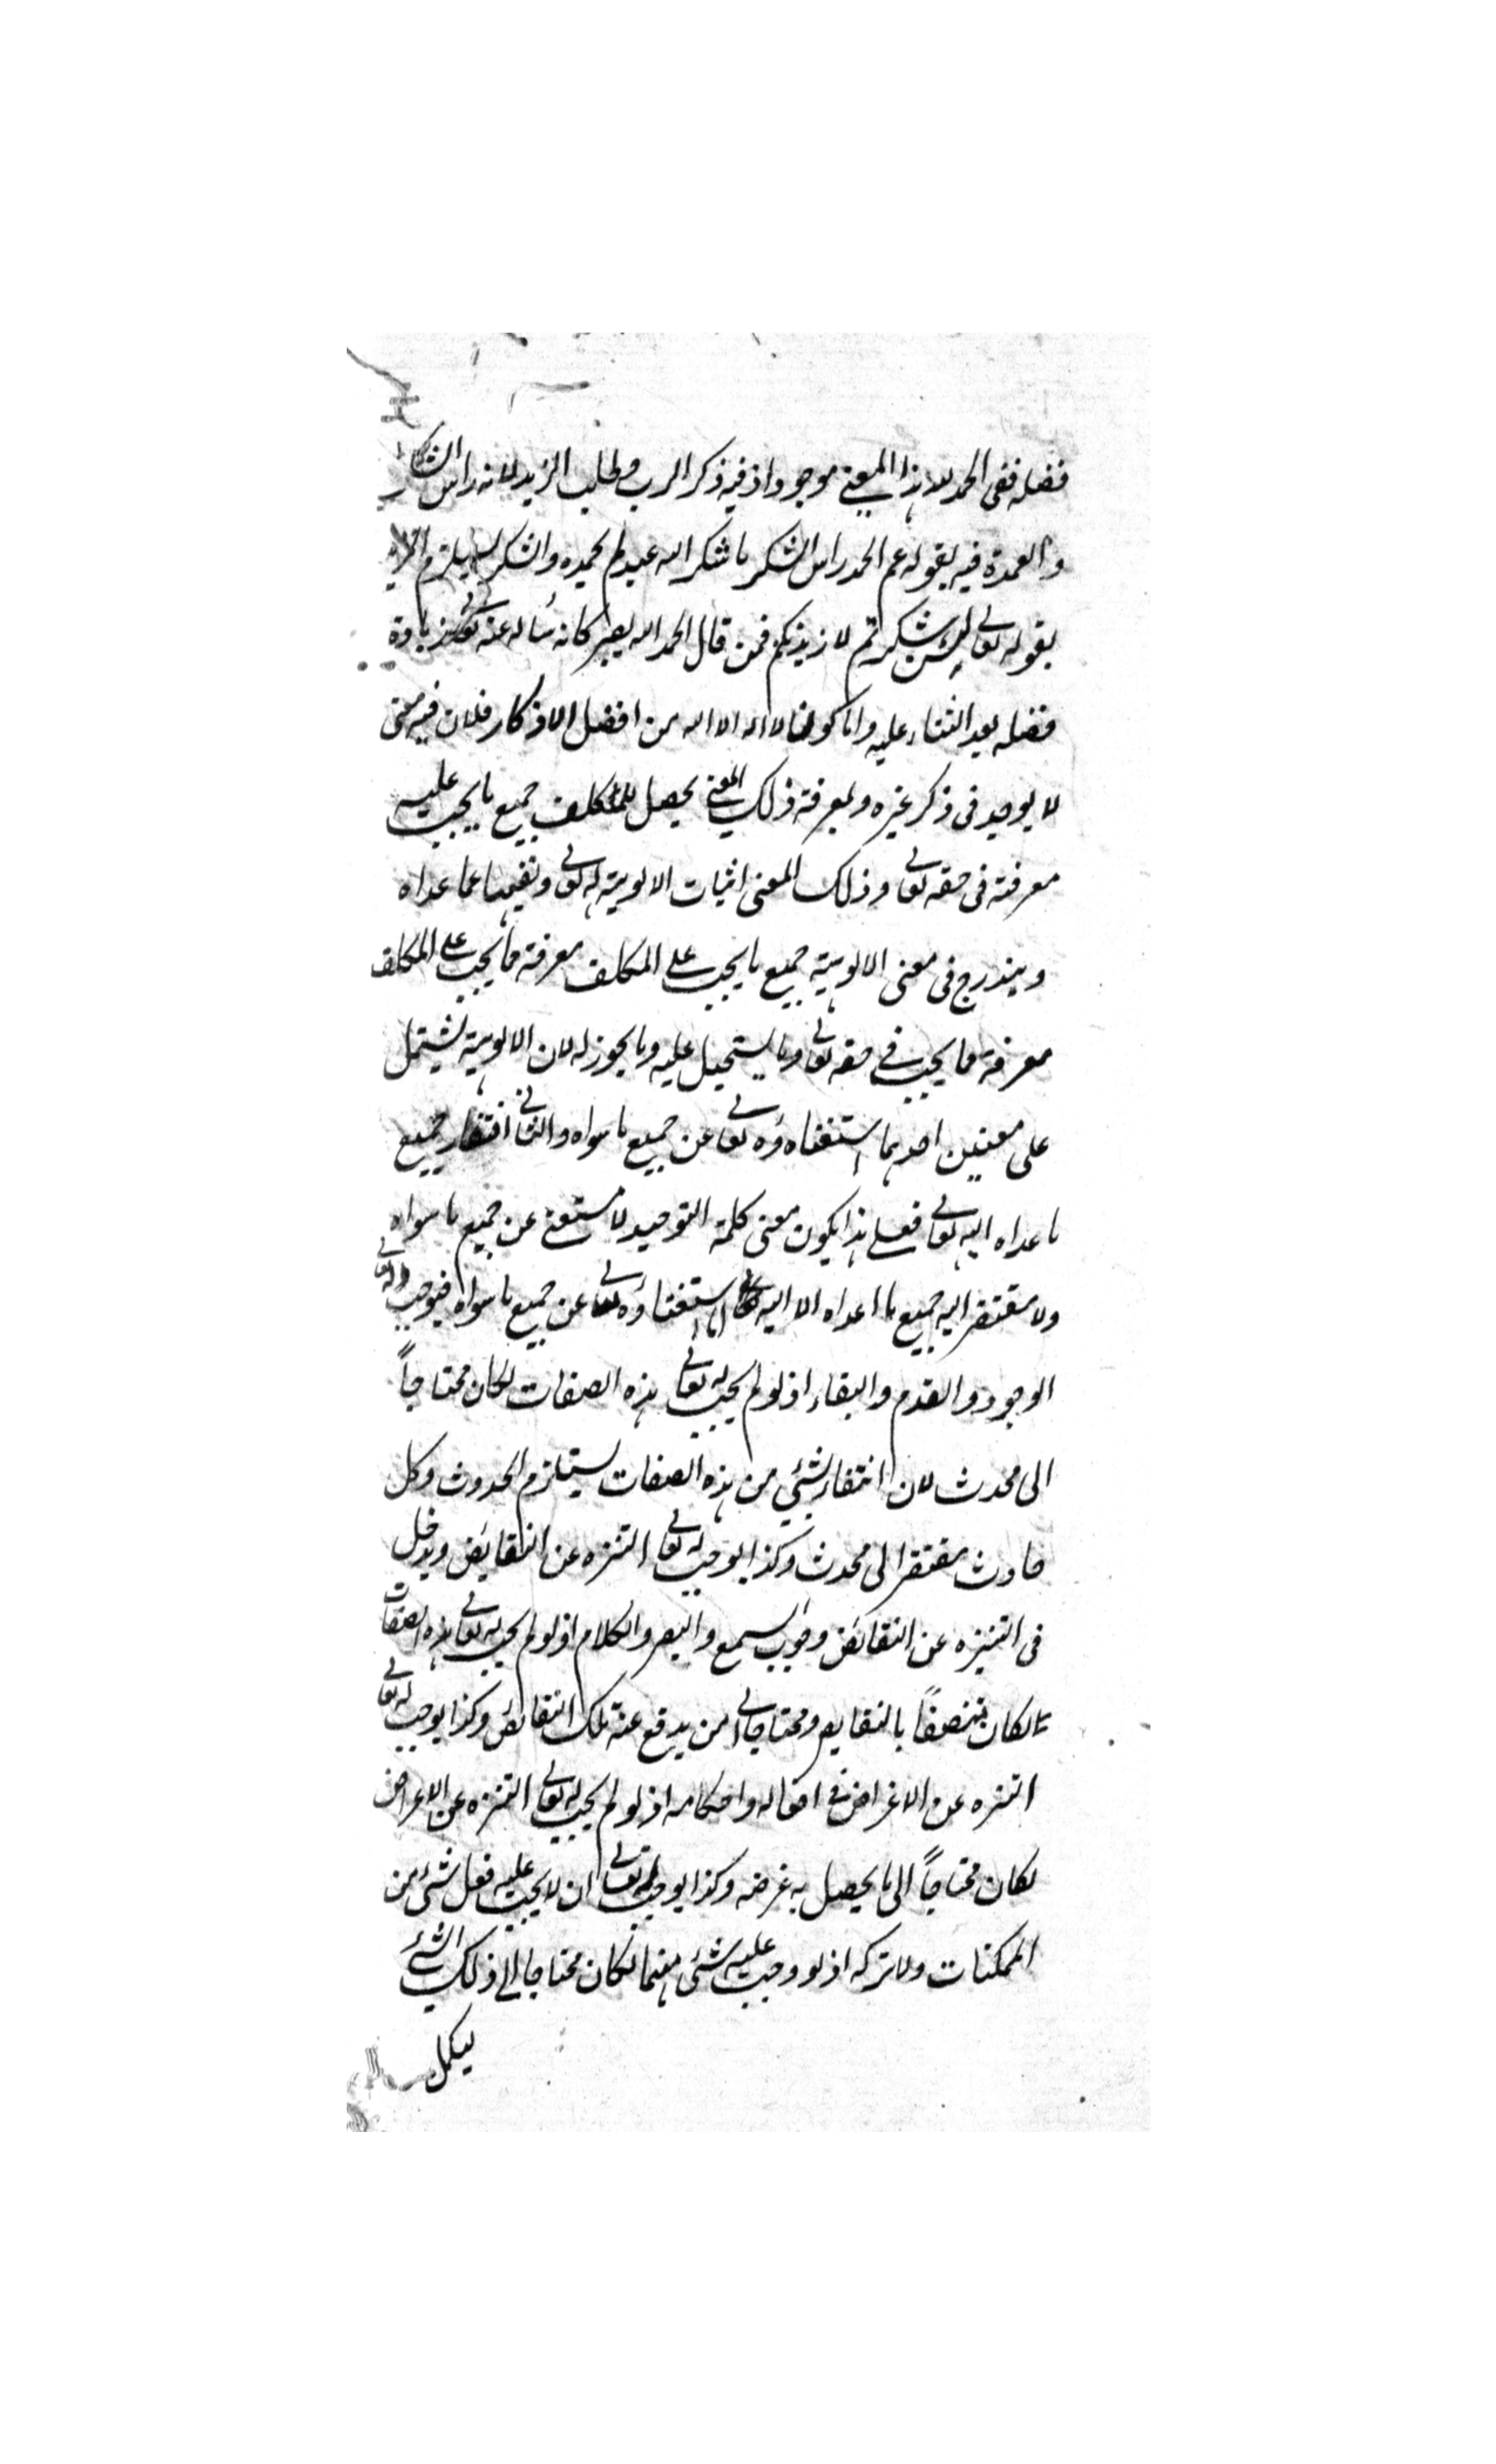 فضله ففى الحمد لله هذا المعنى موجود اذ فيه ذكر الرب وطلب المزيد لانه راس الشكر
والعمدة فيه لقوله عم الحمد راس الشكر ما شكر الله عبد لم يحمده والشكر يستلزم المزيد
لقوله تعالى لئن شكرتم لازيدنكم فمن قال الحمد لله يصير كانه سأله عنه تعالى زيادة
فضله بعد الثناء عليه واما كون لا اله الا الله من افضل الاذكار فلان فيه معنى
لا يوجد فى ذكر غيره ولمعرفة ذلك المعنى يحصل للمكلف جميع ما يجب عليه
معرفته فى حقه تعالى وذلك المعنى اثبات الالوهية له تعالى ونفيها عما عداه
ويندرج فى معنى الالوهية جميع ما يجب على المكلف معرفة مما يجب على المكلف
معرفة مما يجب فى حقه تعالى وما يستحيل عليه وما يجوز له لان الالوهية يشتمل
على معنيين احدهما استغناءه تعالى عن جميع ما سواه والثانى افتقار جميع
ما عداه اليه تعالى فعلى هذا يكون معنى كلمة التوحيد لا مستغنى عن جميع ما سواه
ولا مفتقر اليه جميع ما عداه الا اليه تعالى اما استغناؤه تعالى عن جميع ما سواه فيوجب له تعالى
الوجود والقدم والبقاء اذ لو لم يجب له تعالى هذه الصفات لكان محتاجاً
الى محدث لان انتفاء شئ من هذه الصفات يستلزم الحدوث وكل
حادث مفتقر الى محدث وكذا يوجب له تعالى التنزه عن النقايض ويدخل
فى التنزه عن النقائض وجوب السمع والبصر والكلام اذ لو لم يجب له تعالى هذه الصفات
لكان متصفاً بالنقايص ومحتاجا الى من يدفع عنه تلك النقائض وكذا يوجب له تعالى
التنزه عن الاغراض فى افعاله واحكامه اذ لو لم يجب له تعالى التنزه عن الاغراض
لكان محتاجاً الى ما يحصل به غرضه وكذا يوجب له تعالى ان لا يجب عليه فعل شئ من
الممكنات ولا تركه اذ لو وجب عليه شئ منهما لكان محتاجا الى ذلك الشئ
ليكمل